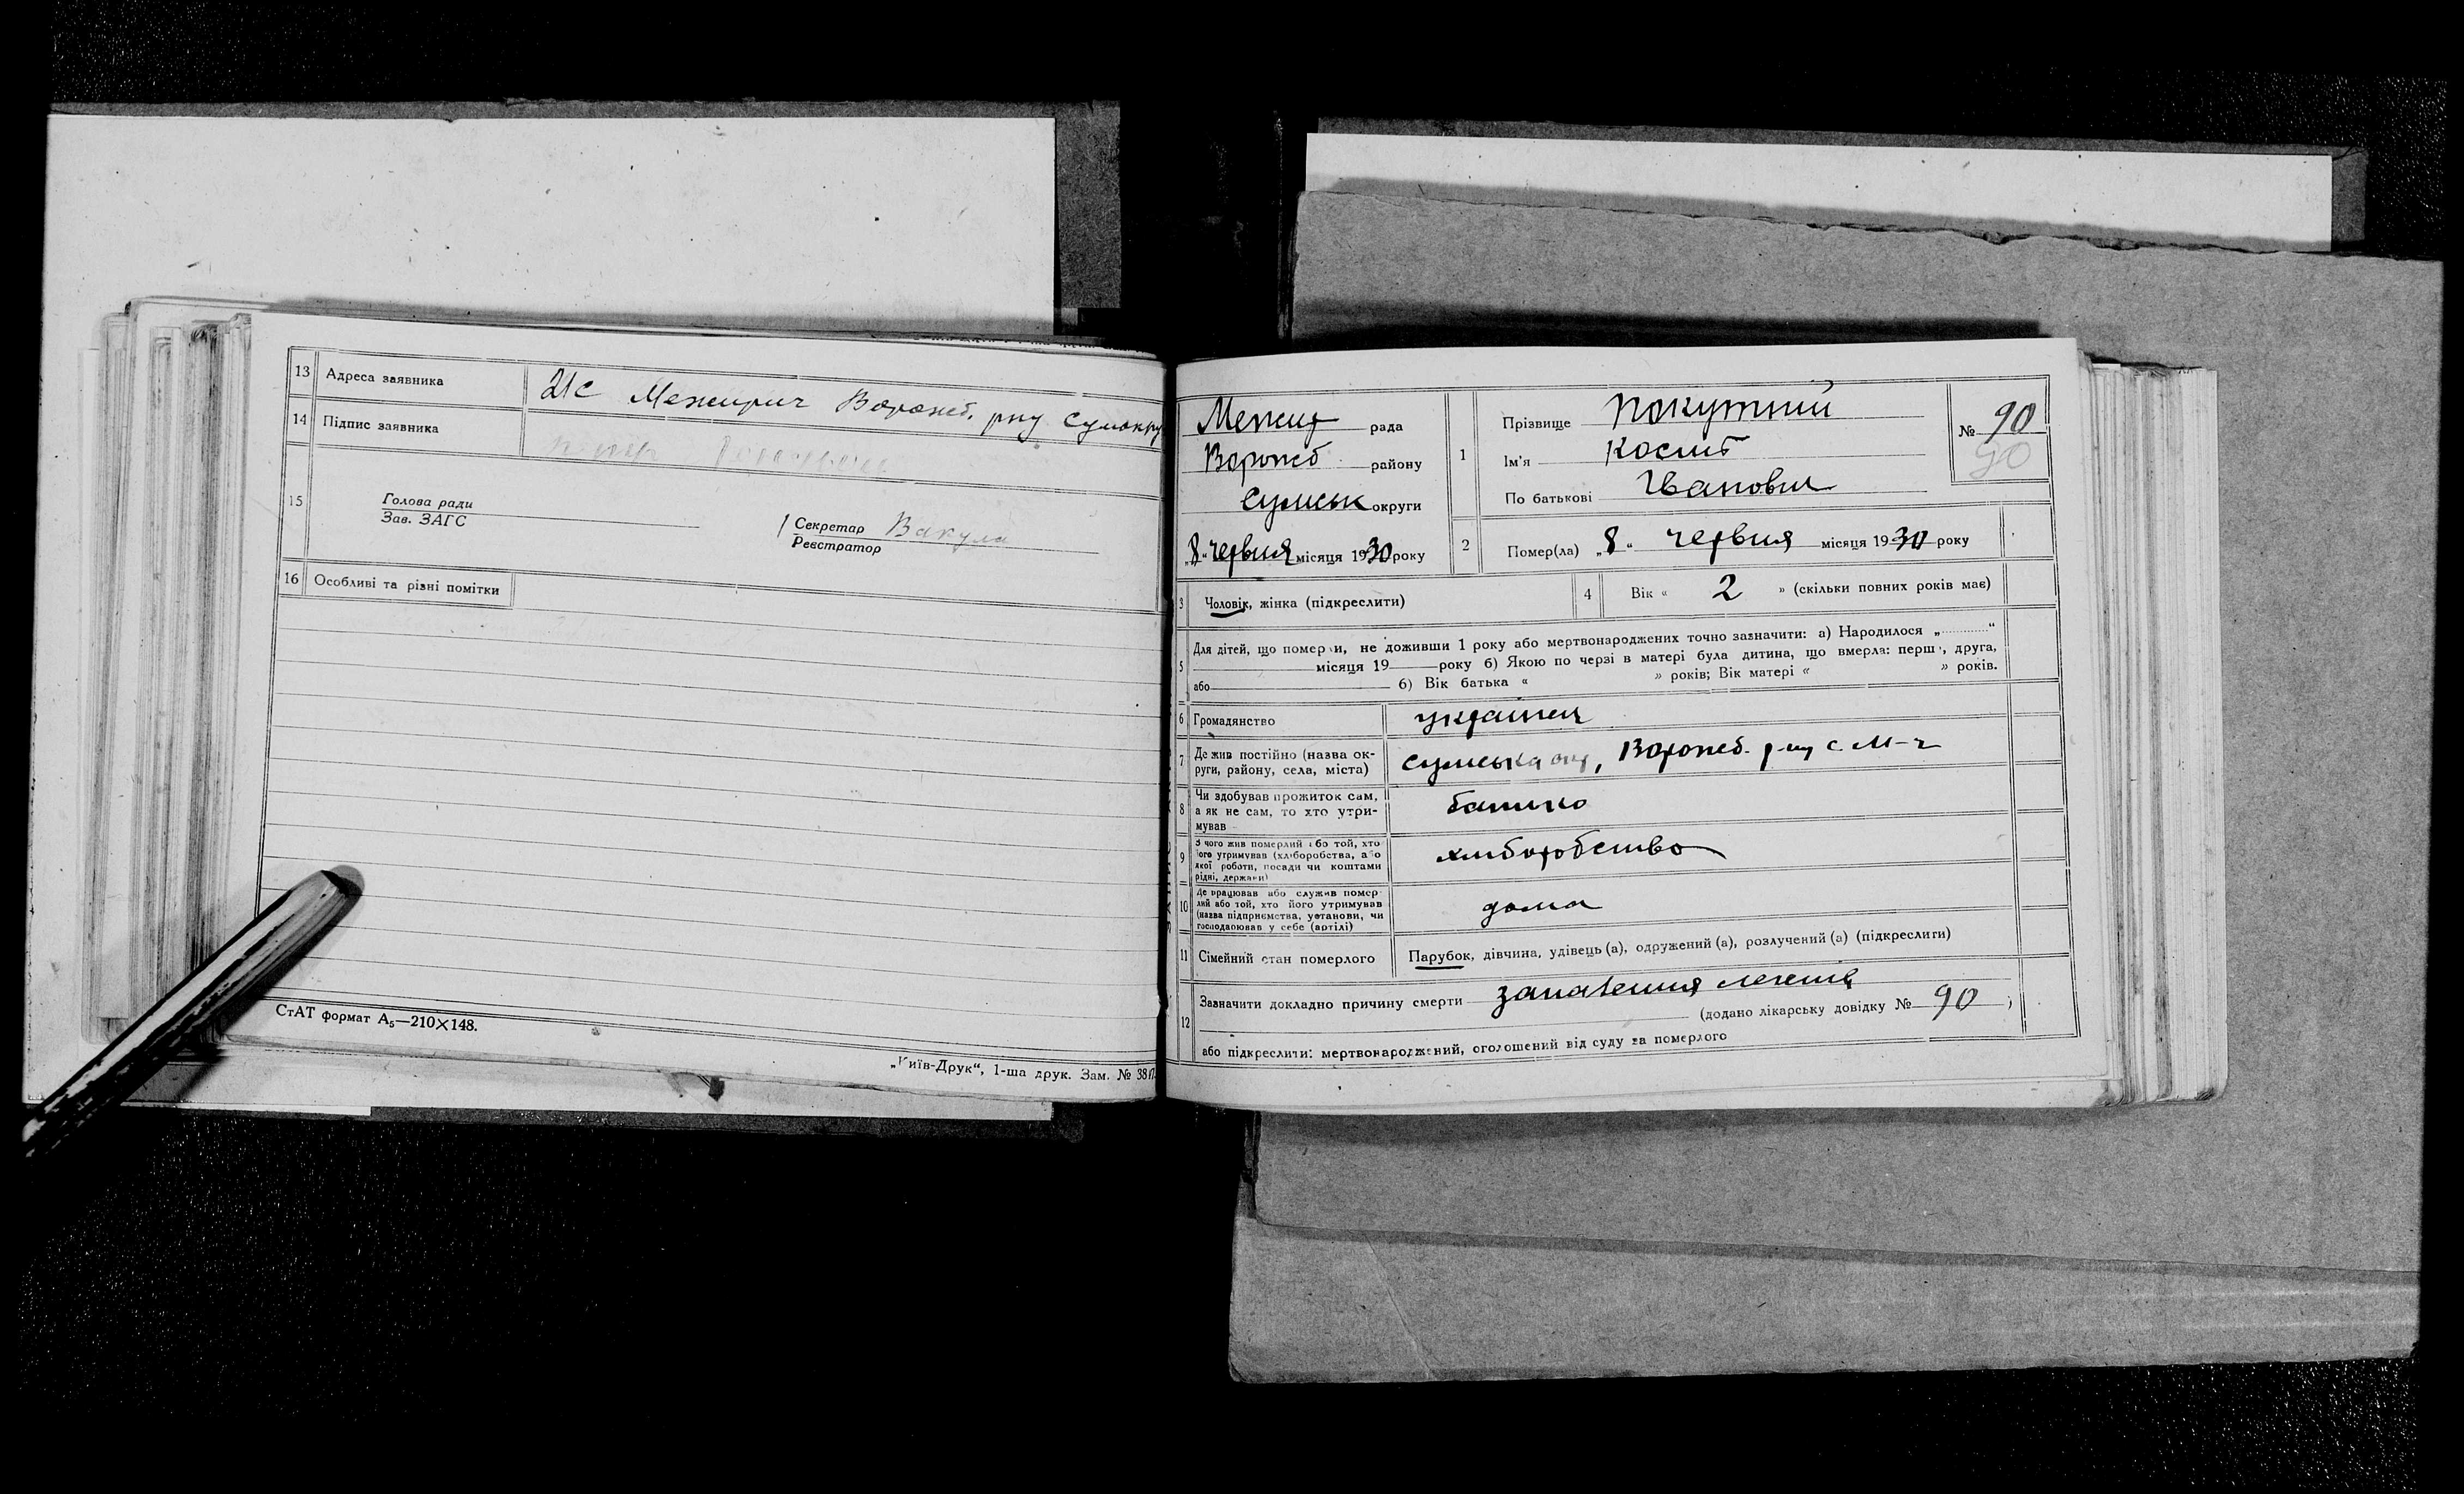 13 Адреса заявника
21с МежиричВорожб. рну Сумокру
14 Підпис заявника
15 Голова ради
Зав. ЗАГС
Секретар Вакула
Реєстратор
16 Особливі та різні помітки
СтАТ формат А₅—210×148.
„Київ-Друк“, 1-ша друк. Зам. № 381
Межир рада
Ворожб району
Сумськ округи
„8“ червня місяця 1930 року
1 Прізвище Покутний
Ім'я Косит
По батькові Іванович
№ 90
90
2 Помер(ла) „8“ червня місяця 1930 року
3 Чоловік, жінка (підкреслити)
4 Вік « 2 » (скільки повних років має)
5 Для дітей, що померли, не доживши 1 року або мертвонароджених точно зазначити: а) Народилося „ “
місяця 19 року б) Якою по черзі в матері була дитина, що вмерла: перша, друга,
або б) Вік батька « » років; Вік матері « » років.
6 Громадянство українец
7 Де жив постійно (назва ок-
руги, району, села, міста)
сумська окр, Ворожб. р-ну с. М-ч
8 Чи здобував прожиток сам,
а як не сам, то хто утри-
мував
батько
9 З чого жив померлий або той, хто
його утримував (хліборобства, або
якої роботи, посади чи коштами
рідні, держави)
хліборобство
10 Де працював або служив помер-
лий або той, хто його утримував
(назва підприємства, установи, чи
господарював у себе (артілі)
дома
11 Сімейний стан померлого Парубок, дівчина, удівець (а), одружений (а), розлучений (а) (підкреслити)
12 Зазначити докладно причину смерти запалення легенів
(додано лікарську довідку № 90 )
або підкреслити: мертвонароджений, оголошений від суду за померлого